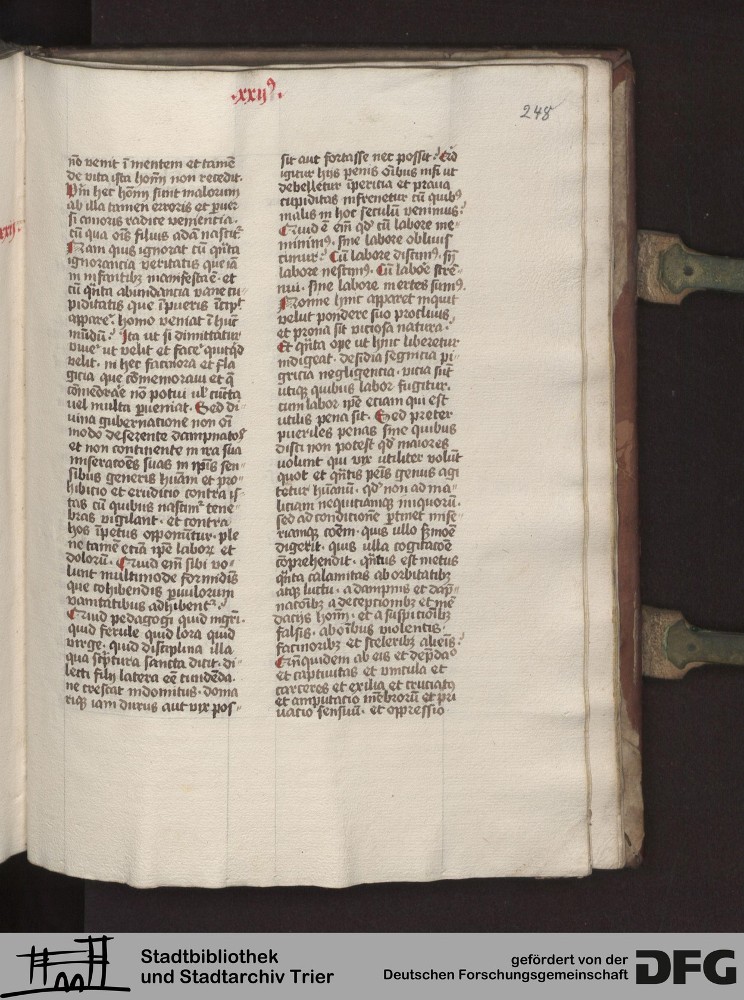 ·xxijꝰ·
248
nō venit ī mentem et tamē
de vita ista homī non recedit.
hec homī sunt malorum
ab illa tamen erroris et peruer
si amoris radice venientia.
cū qua oīs filius adā nascit᷑
Nam quis ignorat cū qn̄ta
ignorancia veritatis que iā
in infantibꝫ manifesta ē. et
cū qn̄ta abundancia vane cu
piditatis que īpueris īcip̄t
apparē. homo veniat ī hūc
mūdū. Ita ut si dimittatur
viuē ut velit et facē quicq̄d
velit. in hec facinora et fla
gicia que cōmemoraui et q̄
cōmedrāē nō potui uꝉ cūcta
uel multa ꝑueniat. Sed di
uina gubernatione non oī
modo deserente dampnatoꝭ
et non continente in ira sua
miseratōes suas in ip̄is sen
sibus generis hūani et pro
hibicio et erudicio contra is
tas cū quibus nascim᷑ tene
bras vigilant. et contra
hos īpetus opponūtur. ple
ne tamē etiā ip̄e labore et
dolorū. Quid em̄ sibi vo
lunt multimode formidīs
que cohibendis puulorum
vanitatibus adhibent᷑.
Quid pedagogi quid mgr̄i.
quid ferule quid lora quid
virge. quid disciplina illa
qua scptura sancta dicit. di
lecti filij latera eē tundēda.
ne crescat indomitus. doma
riqꝫ iam durus aut vix pos
sit aut fortasse nec possit.
igitur hijs penis oībus nisi ut
debelletur īpericia et praua
cupiditas infrenetur cū quibꝰ
malis in hoc seculū venimus.
Quid ē em̄ qd̓ cū labore me
minimꝰ. sine labore obliuis
cimur. Cū labore discimꝰ. sn̄
labore nescimꝰ. Cū laboē stre
nui. sine labore inertes sumꝰ.
Nonne hinc apparet inquit
velut pondere suo procliuis.
et prona sit viciosa natura.
Et qn̄ta ope ut hinc liberetur
indigeat. desidia segnicia pi
gricia negligencia. vicia sūt
utiqꝫ quibus labor fugitur.
cum labor ip̄e etiam qui est
utilis pena sit. Sed preter
pueriles penas sine quibus
disci non potest qd̓ maiores
volunt qui vix utiliter volūt
quot et qn̄tis penis genus agi
tetur hūanū. qd̓ non ad ma
liciam nequitiamqꝫ iniquorū.
sed ad conditionē ꝑtinet mise
riamqꝫ cōem. quis ullo s̄rmōe
digerit. quis ulla cogitacōe
cōprehendit. qn̄tus est metus
qn̄ta calamitas ab orbitatibꝫ
atqꝫ luctu. a dampnis et dāp
natōibꝫ a deceptionibꝫ et mē
dacijs homī. et a suspicioībꝫ
falsis. ab oībus violentis.
facinoribꝫ et sceleribꝫ alieīs.
Qn̄quidem ab eis et dep̄dacō
et captiuitas et vincula et
carceres et exilia et cruciatꝰ
et amputacio mēbrorū et pri
uacio sensuū. et oppressio
Stadtbibliothek
und Stadtarchiv Trier
gefördert von der
Deutschen Forschungsgemeinschaft
DFG